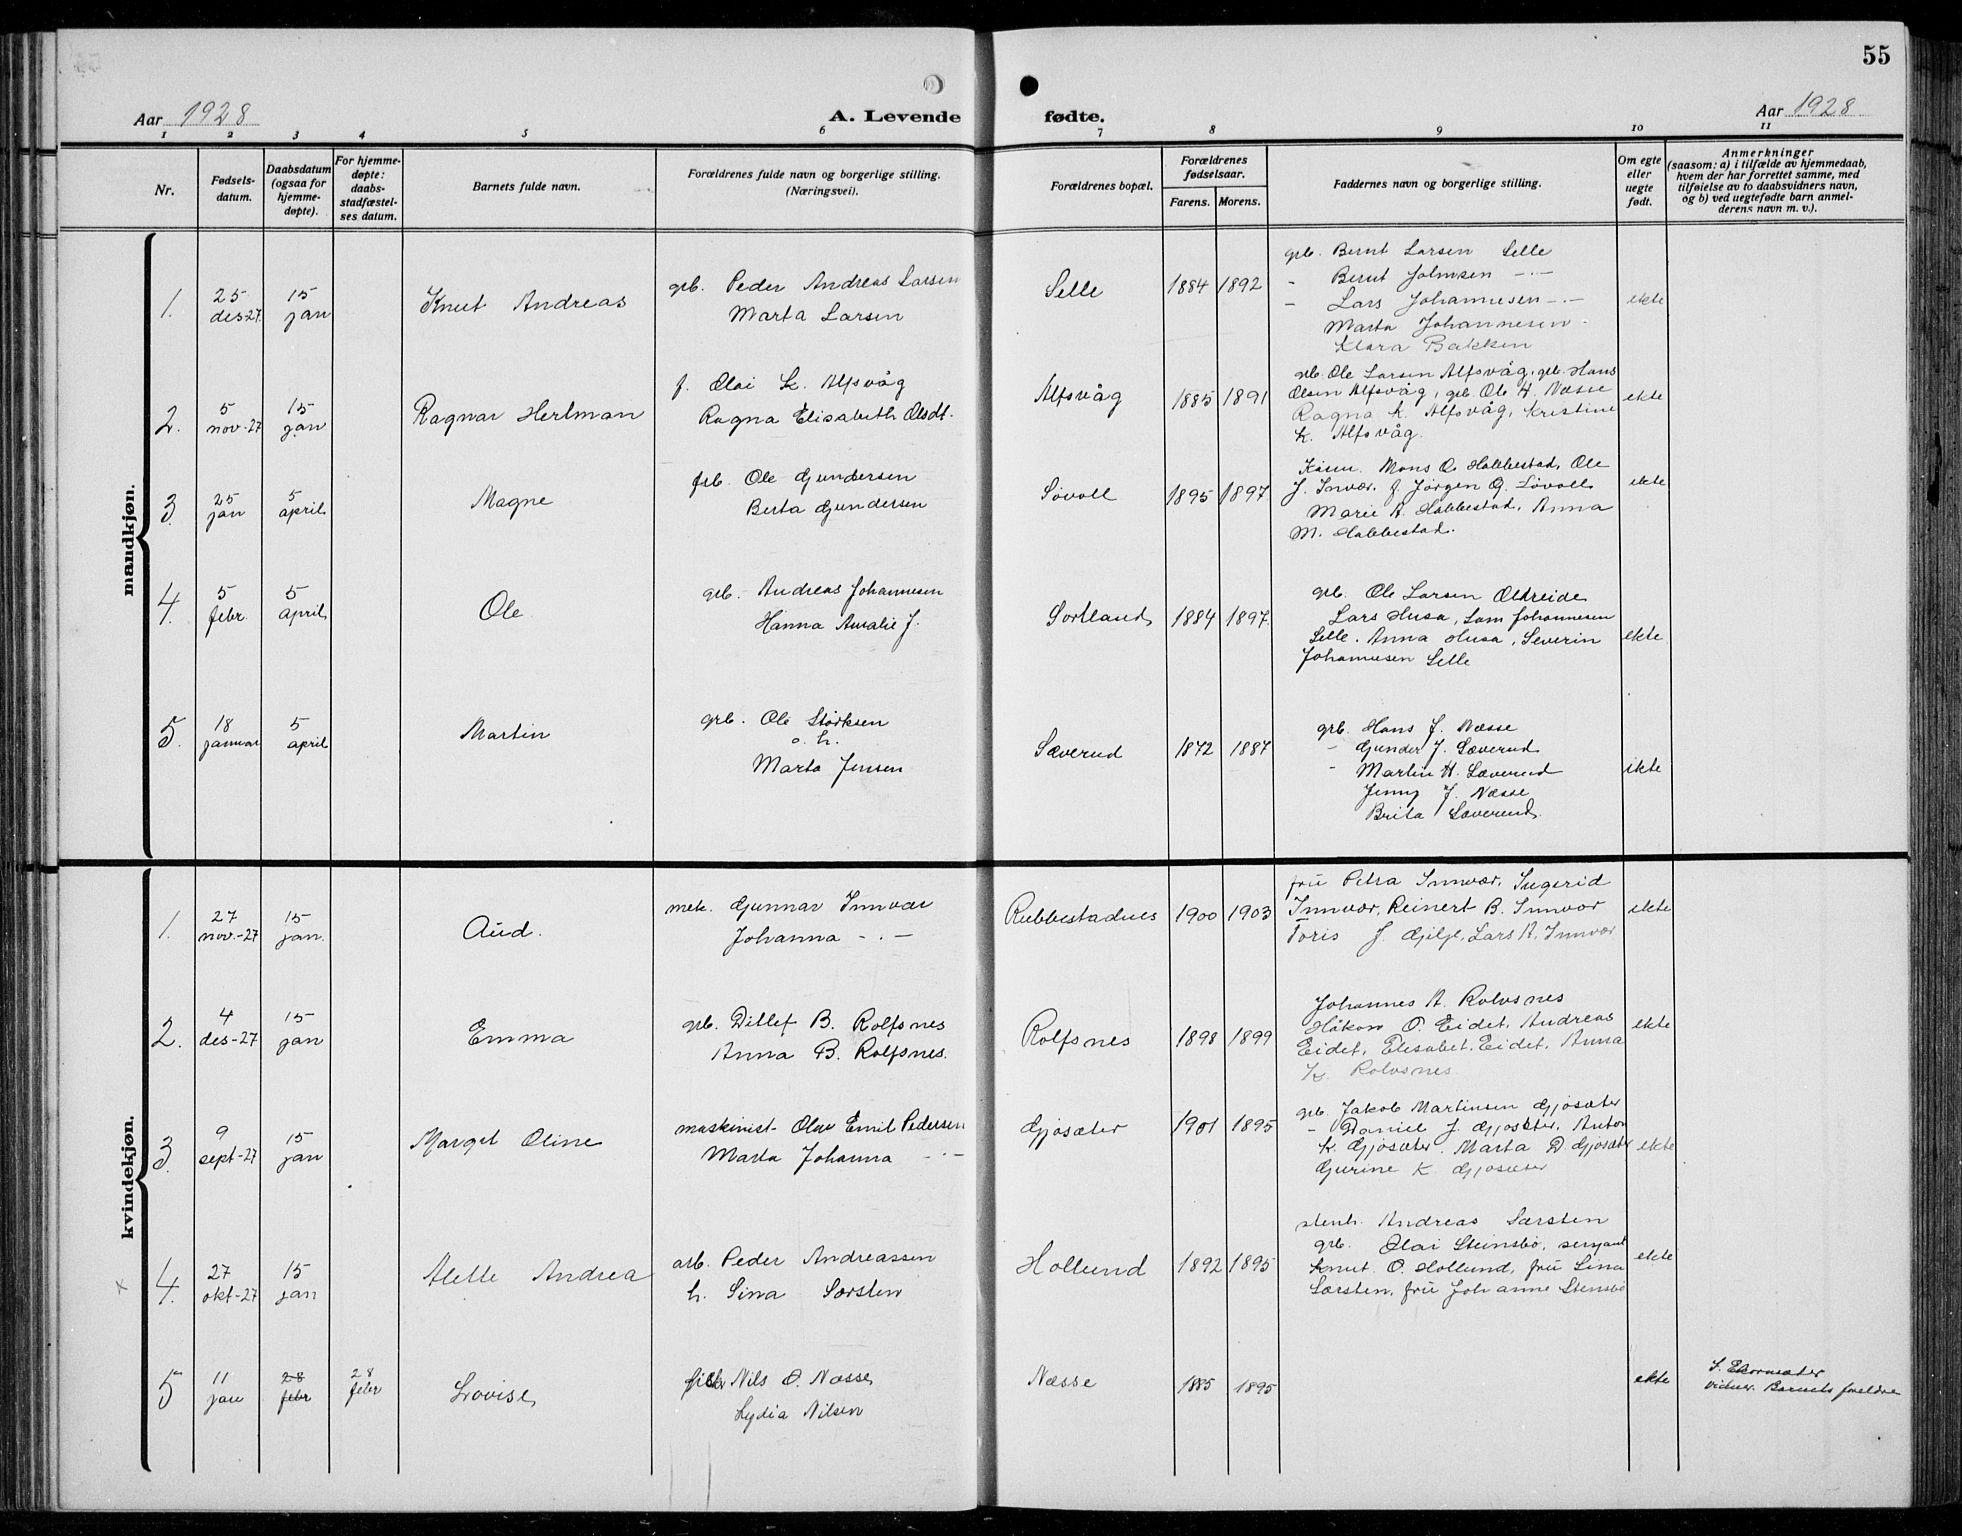 55
Aar 1928
A. Levende fødte.
Aar 1928
1 2 3 4 5 6 7 8 9 10 11
Nr.
Fødsels-
datum.
Daabsdatum
(ogsaa for
hjemme-
døpte).
For hjemme-
døpte:
daabs-
stadfæstel-
ses datum.
Barnets fulde navn.
Forældrenes fulde navn og borgerlige stilling.
(Næringsvei).
Forældrenes bopæl.
Forældrenes
fødselsaar.
Farens. Morens.
Faddernes navn og borgerlige stilling.
Om egte
eller
uegte
født.
Anmerkninger
(saasom: a) i tilfælde av hjemmedaab,
hvem der har forrettet samme, med
tilføielse av to daabsvidners navn,
og b) ved uegtefødte barn anmel-
derens navn m. v.).
mandkjøn.
1.
25
des-27.
15
jan
Knut Andreas
grb. Peder Andreas Larsen
Marta Larsen
Selle
1884 1892
grb. Bernt Larsen Selle
- Bernt Johnsen -"-
- Lars Johannesen -"-
Marta Johannesen -
Klara Bakken
ekte
2.
5
nov-27
15
jan
Ragnar Herlman
f. Olai K. Alfsvåg
Ragna Elisabeth Olsdt.
Alfsvåg
1885 1891
grb. Ole Larsen Alfsvåg, grb. Hans
Olsen Alfsvåg, grb. Ole H. Næsse
Ragna K. Alfsvåg, Kristine
K. Alfsvåg.
ekte
3.
25
jan
5
april
Magne
frb. Ole Gundersen
Berta Gundersen
Løvoll
1895 1897
Mons O. Habbestad, Ole
J. Innvær, f Jørgen G. Løvoll
Marie A. Habbestad, Anna
M. Habbestad.
ekte
4.
5
febr.
5
april
Ole
grb. Andreas Johannesen
Hanna Amalie J.
Sortland
1884 1897.
grb. Ole Larsen Økreide
Lars Husa, Sam Johannesen
Selle. Anna Husa, Severin
Johannesen Selle
ekte
5.
18
januar
5
april
Martin
grb. Ole Størksen
o. h.
Marta Jensen
Sæverud
1872 1887
grb. Hans J. Næsse
- Gunder J. Sæverud
- Martin H. Sæverud
Jenny J. Næsse
Brita Sæverud.
ekte
kvindekjøn.
1.
27
nov.-27
15
jan.
Aud.
mek. Gunnar Innvær
Johanna -"-
Rubbestadnes
1900 1903
fru Petra Innvær, Ingerid
Innvær, Reinert B. Innvær
Toris J. Gilje, Lars A. Innvær
ekte
2.
4
des-27
15
jan
Emma
grb. Ditlef B. Rolfsnes
Anna B. Rolfsnes.
Rolfsnes
1898 1899
Johannes A. Rolvsnes
Håkon O. Eidet, Andreas
Eidet, Elisabet Eidet, Anna
K. Rolvsnes
ekte
3.
9
sept-27
15
jan
Marget Oline
maskinist Olav Emil Pedersen
Marta Johanna -"-
Gjøsæter
1901 1895
grb. Jakob Martinsen Gjøsæter
- Daniel J. Gjøsæter, Anton
K. Gjøsæter, Marta D. Gjøsæter
Gurine K. Gjøsæter
ekte
x
4.
27
okt-27
15
jan
Alette Andrea
arb. Peder Andreassen
h. Sina Sørsten
Hollund
1892 1895
stenh. Andreas Særsten
grb. Olai Steinsbø, sersjant
Knut O. Hollund, fru Sina
Særsten, fru Johanne Stensbø
ekte
5
11
jan
28
febr
28
febr
Lovise
fisker Nils O. Næsse
Lydia Nilsen
Næsse
1885 1895
ekte
vidner. Barnets foreldre